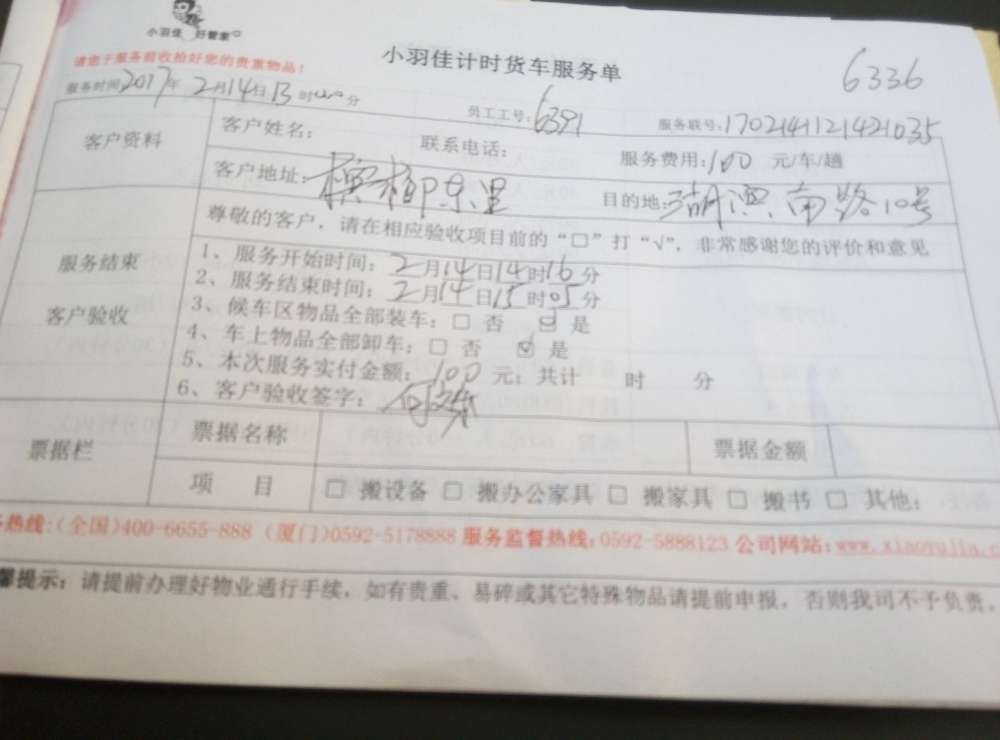 小羽佳 好管家
请您于服务前收拾好您的贵重物品!
小羽佳计时货车服务单
6336
服务时间2017年2月14日13时00分
员工工号:6391
服务联号:1702141121421035
客户资料
客户姓名:
联系电话:
服务费用:100元/车/趟
客户地址:槟榔东里
目的地:湖滨南路10号
服务结束
客户验收
尊敬的客户,请在相应验收项目前的“□”打“√”,非常感谢您的评价和意见
1、服务开始时间:2月14日14时16分
2、服务结束时间:2月14日15时05分
3、候车区物品全部装车:□ 否 ☑ 是
4、车上物品全部卸车:□ 否 ☑ 是
5、本次服务实付金额:100元;共计 时 分
6、客户验收签字:
票据栏
票据名称
票据金额
项 目
□ 搬设备 □ 搬办公家具 □ 搬家具 □ 搬书 □ 其他:
热线:(全国)400-6655-888 (厦门)0592-5178888 服务监督热线:0592-5888123 公司网站:www.xiaoyujia.c
馨提示:请提前办理好物业通行手续,如有贵重、易碎或其它特殊物品请提前申报,否则我司不予负责。